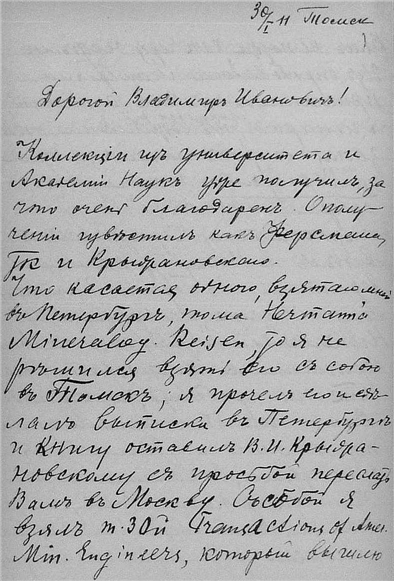 30/I 11 Томскъ
Дорогой Владимиръ Ивановичъ!
Коллекціи изъ университета и
Академіи Наукъ уже получилъ, за
что очень благодаренъ. О полу-
ченіи извѣстилъ какъ Ферсмана,
такъ и Крыжановскаго.
Что касается одного, взятаго мной
въ Петербургѣ, тома
Mineralog. Reisen, то я не
рѣшился взять его съ собою
въ Томскъ; я прочелъ его и сдѣ-
лалъ выписки въ Петербургѣ
и книгу оставилъ В. И. Крыжа-
новскому съ просьбой переслать
Вамъ въ Москву. Съ собой я
взялъ т. 30й Transactions of Amer.
Min. Engineers, который вышлю